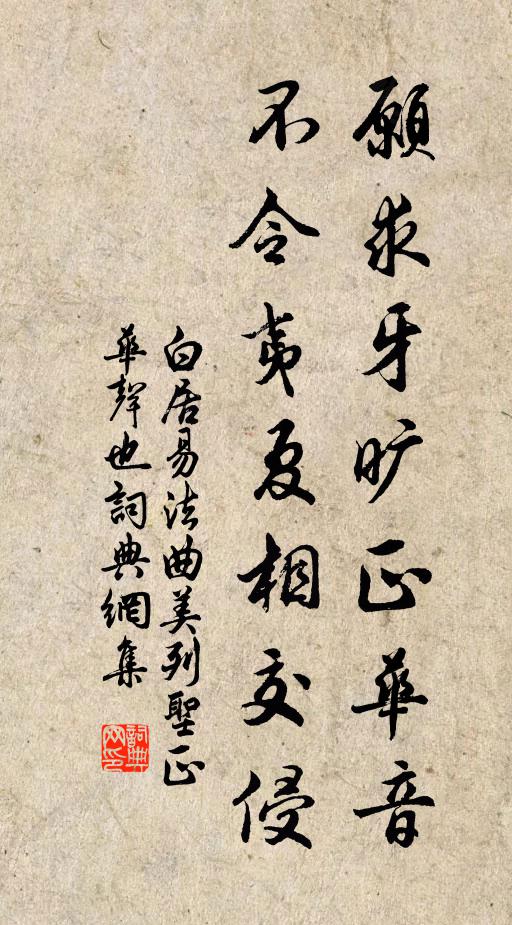 願求牙曠正華音
不令夷夏相交侵
白居易法曲美列聖正
華聲也詞典網集
詞典网印